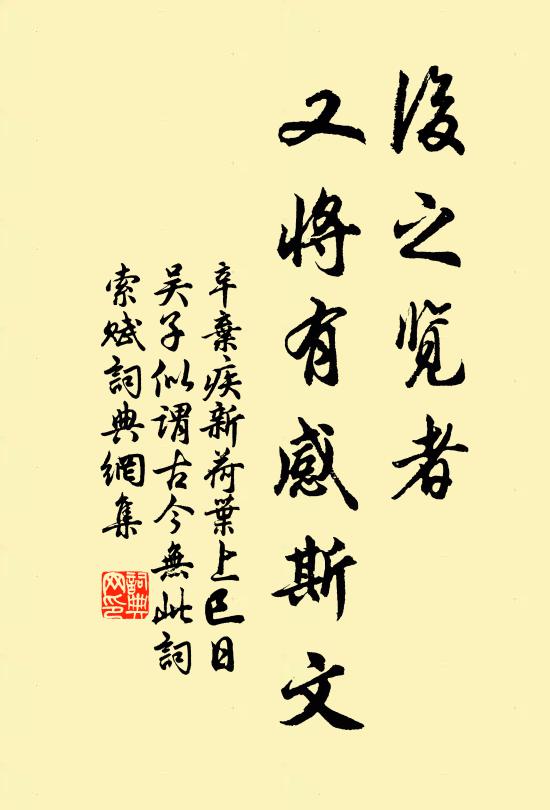 後之覽者
又將有感斯文
辛棄疾新荷葉上巳日
吴子似謂古今無此詞
索賦詞典網集
詞典
网印